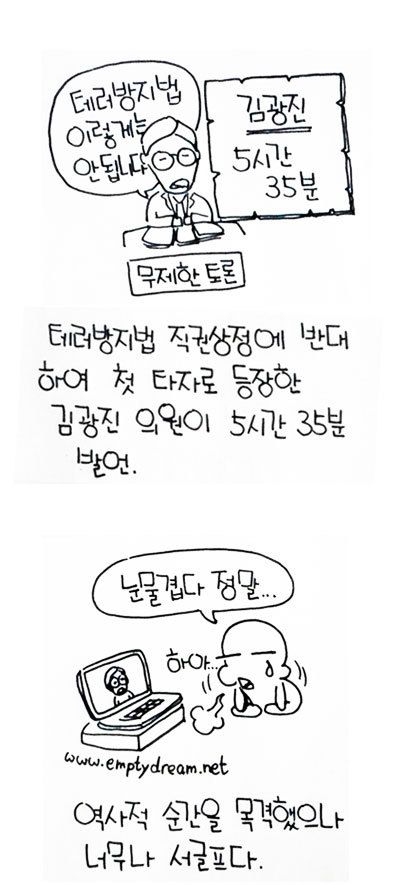 테러방지법
이렇게는
안됩니다
김광진
5시간
35분
무제한 토론
테러방지법 직권상정에 반대
하여 첫 타자로 등장한
김광진 의원이 5시간 35분
발언.
눈물겹다 정말...
하아...
www.emptydream.net
역사적 순간을 목격했으나
너무나 서글프다.